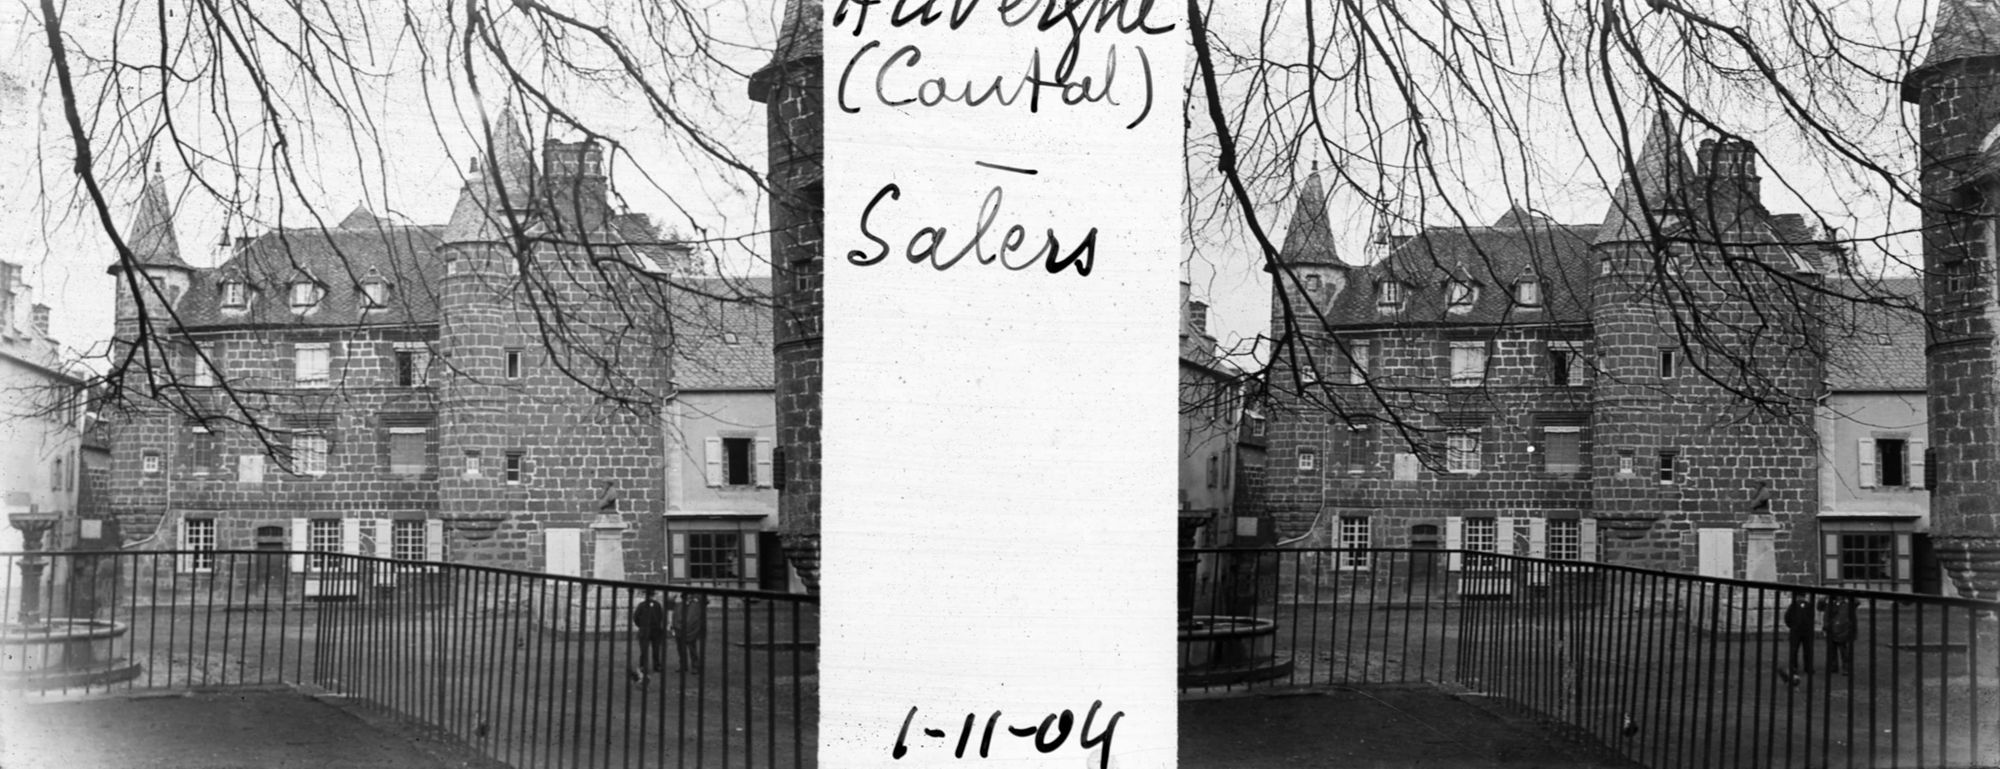 Auvergne
(Cantal)
—
Salers
1-11-04